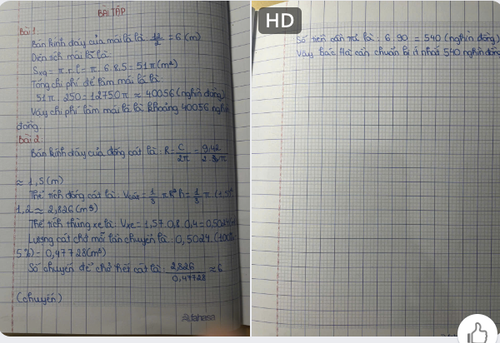 BÀI TẬP
Bài 1
Bán kính đáy của mái lá là 12/2 = 6 (m)
Diện tích mái lá là
Sxq = π.r.l = π.6.8,5 = 51π (m²)
Tổng chi phí để làm mái lá là
51π.250 = 12750π ≈ 40056 (nghìn đồng)
Vậy chi phí làm mái lá là khoảng 40056 nghìn
đồng
Bài 2
Bán kính đáy của đống cát là: R = C/2π = 9,42/
≈ 1,5 (m)
Thể tích đống cát là: = 1/3 πR²h = 1/3 π
1,2 ≈ 2,826 (m³)
Thể tích thùng xe là: Vxe = 1,57.0,8.0,4 = 0,5024
Lượng cát chở mỗi lần chuyển là: 0,5024.
5%) = 0,47728 (m³)
Số chuyến để chở hết cát là: 2,826/0,47728 ≈ 6
(chuyến)
HD
Số tiền cần trả là: 6 90 = 540 (nghìn đồng)
Vậy bác Hà cần chuẩn bị ít nhất 540 nghìn đồng